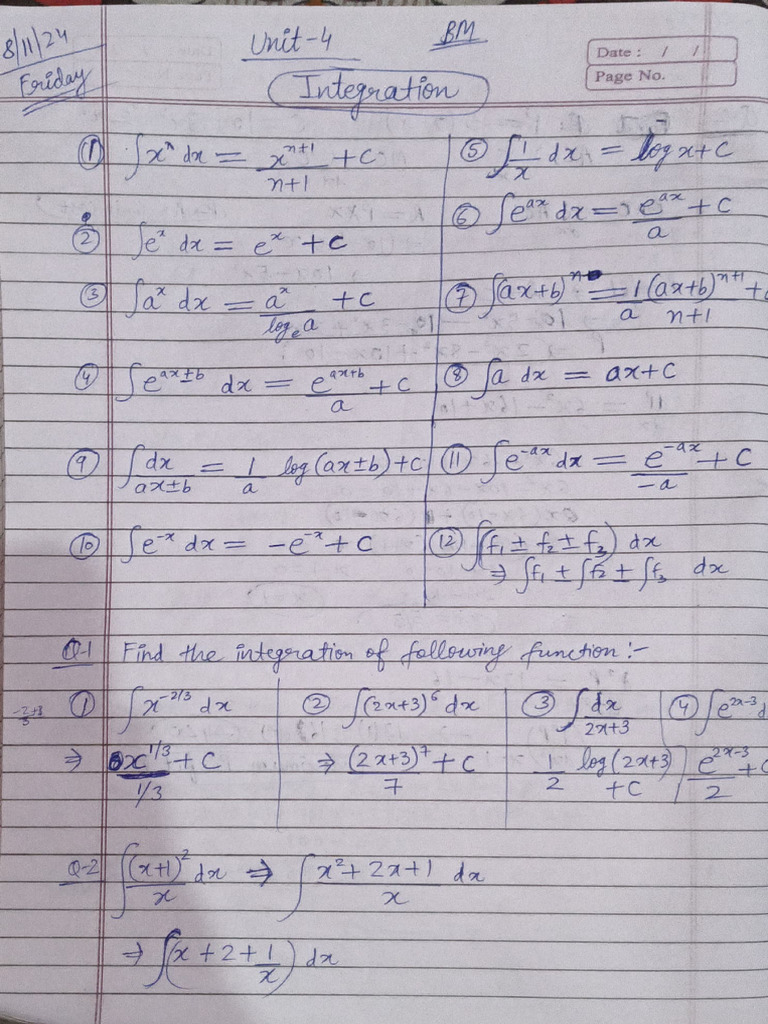 8/11/24 Unit-4 BM
Friday Integration Date : / /
Page No.
① ∫xⁿ dx = x^(n+1)/(n+1) + C
⑤ ∫1/x dx = log x + C
⑥ ∫e^(ax) dx = e^(ax)/a + C
② ∫e^x dx = e^x + C
③ ∫a^x dx = a^x/(log_e a) + C
⑦ ∫(ax+b)^n = 1/a (ax+b)^(n+1)/(n+1) +
④ ∫e^(ax±b) dx = e^(ax+b)/a + C
⑧ ∫a dx = ax + C
⑨ ∫dx/(ax±b) = 1/a log(ax±b) + C
⑪ ∫e^(-ax) dx = e^(-ax)/(-a) + C
⑩ ∫e^(-x) dx = -e^(-x) + C
⑫ ∫(f₁ ± f₂ ± f₃) dx
⇒ ∫f₁ ± ∫f₂ ± ∫f₃ dx
Q-1 Find the integration of following function :-
① ∫x^(-2/3) dx
⇒ x^(1/3)/(1/3) + C
② ∫(2x+3)^6 dx
⇒ (2x+3)^7/7 + C
③ ∫dx/(2x+3)
1/2 log(2x+3) + C
④ ∫e^(2x-3) d
e^(2x-3)/2 + C
Q-2 ∫(x+1)²/x dx ⇒ ∫(x² + 2x + 1)/x dx
⇒ ∫(x + 2 + 1/x) dx